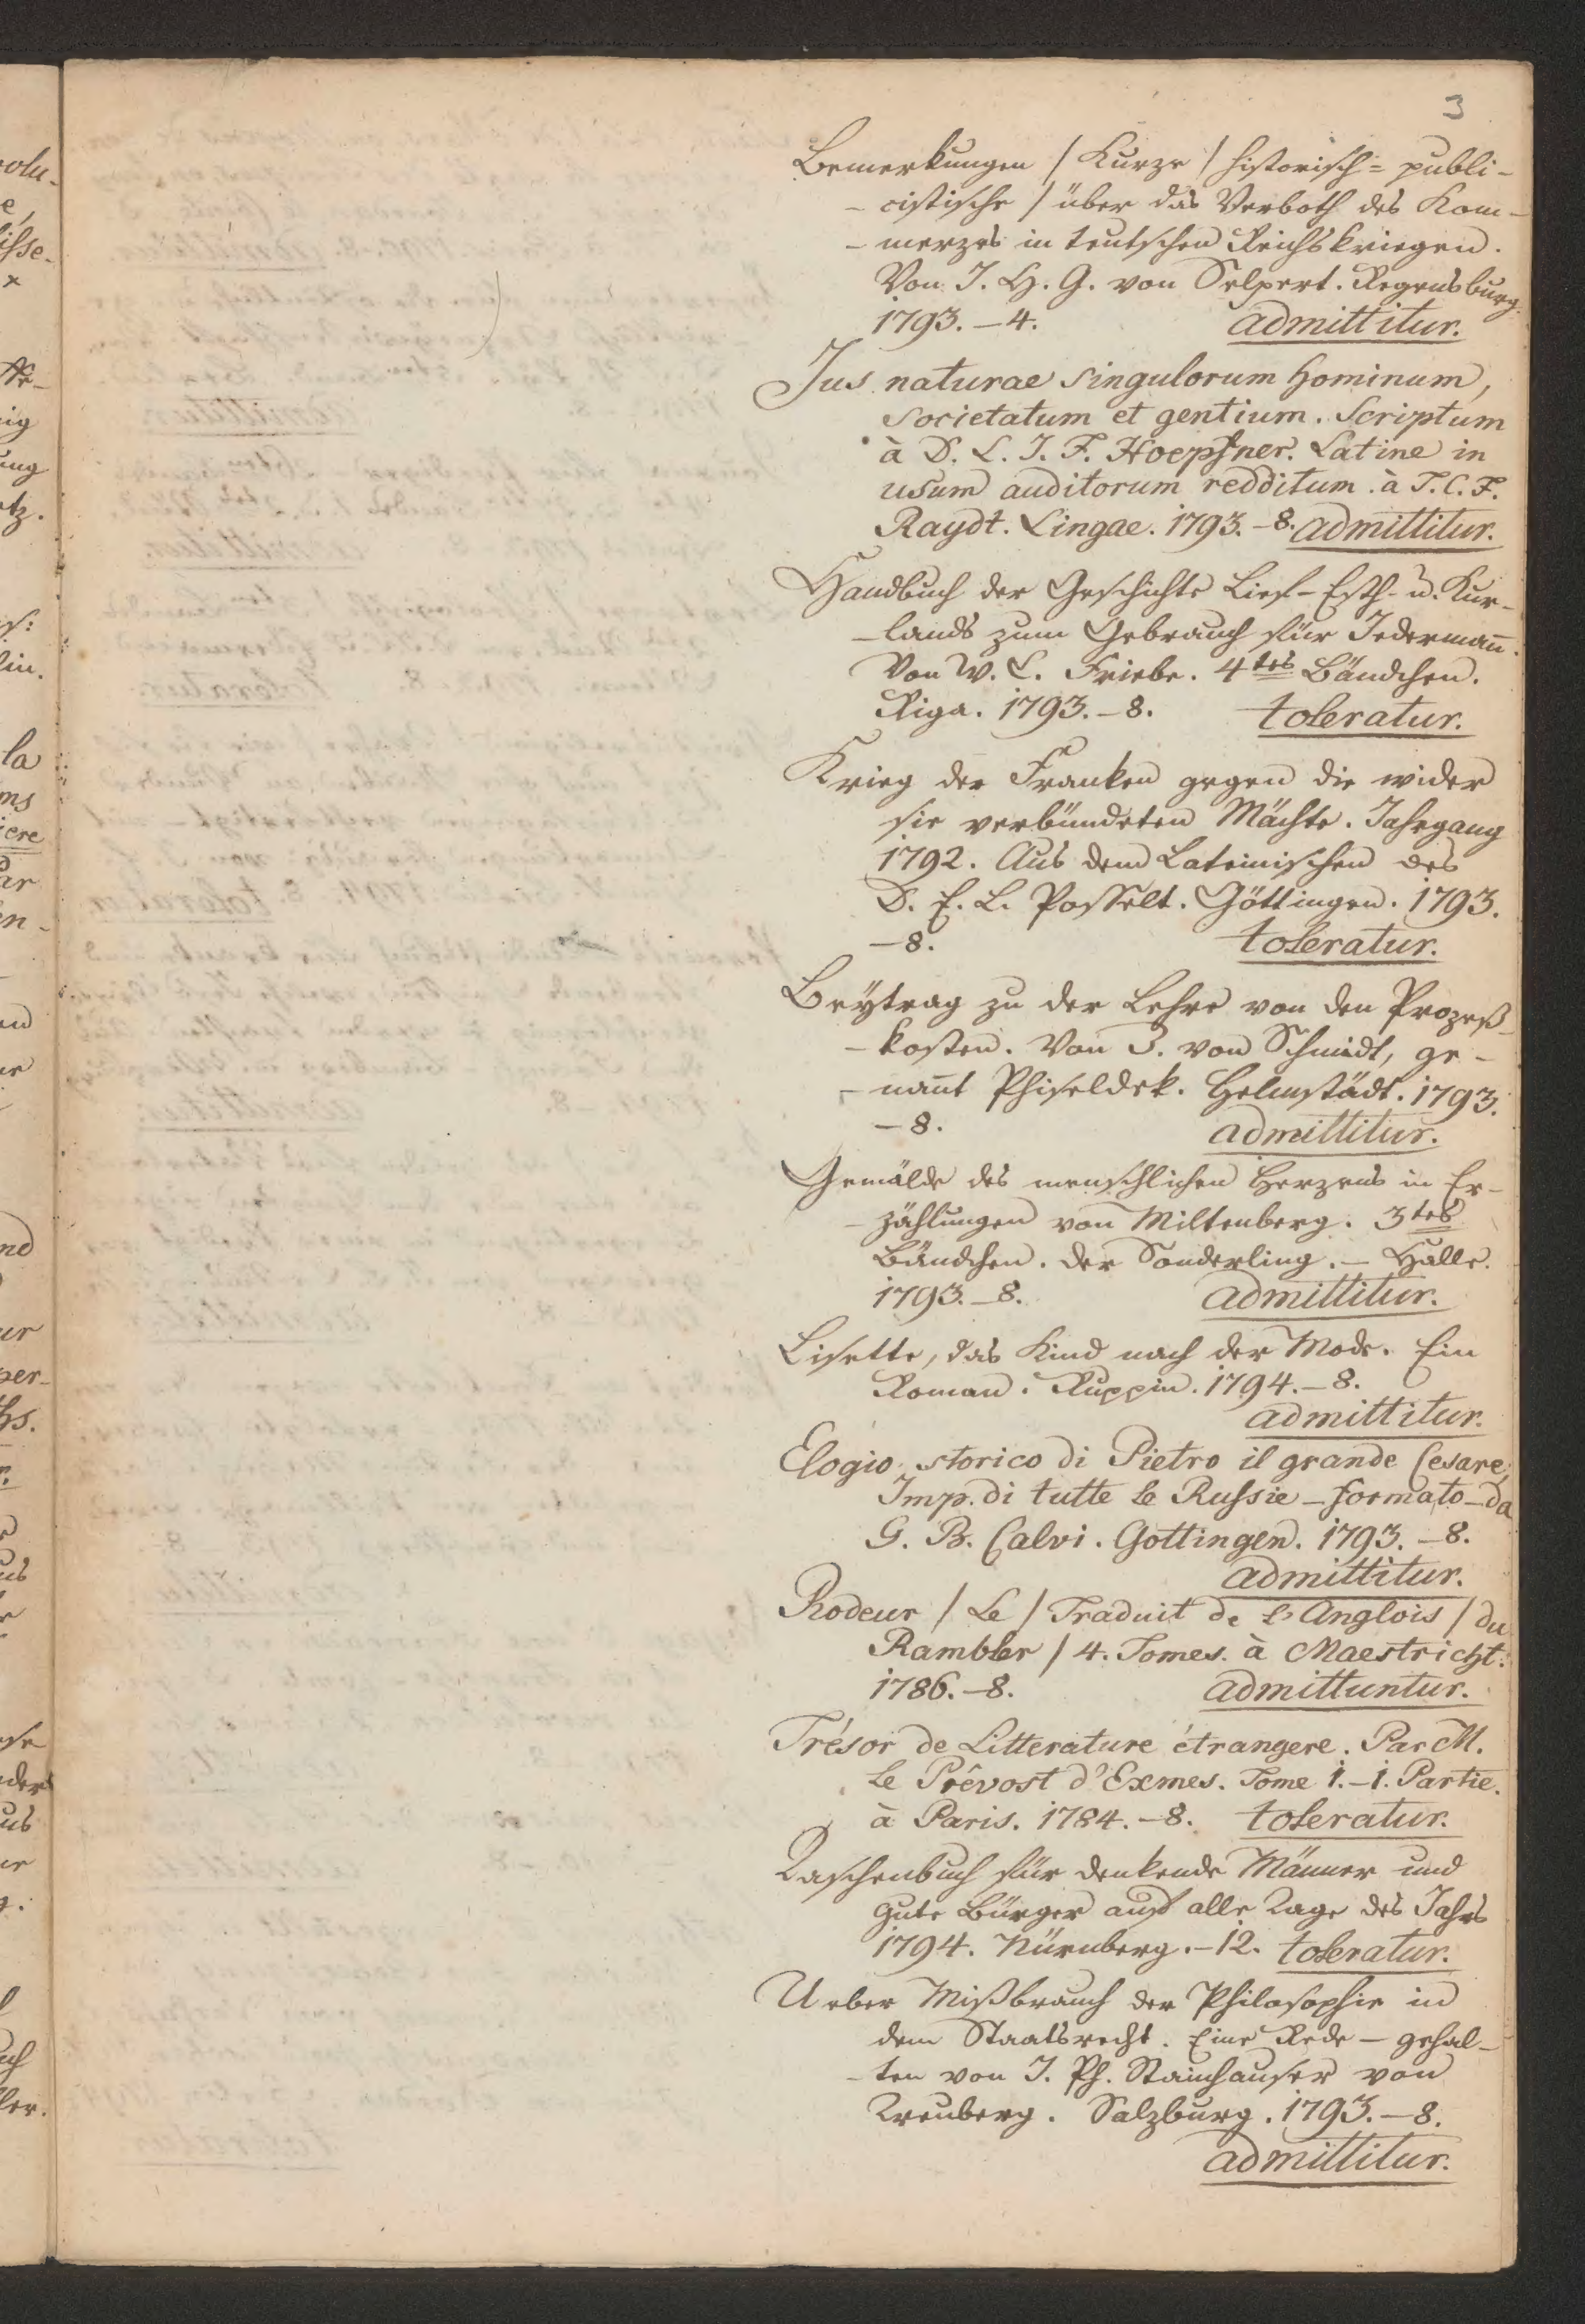 3
Bemerkungen / Kurze / historisch= publi-
- cistische / über das Verboth des Kom-
- merzes in teutschen Reichskriegen.
Von J. H. G. von Selpert. Regensburg.
1793. - 4. admittitur.
Jus naturae singulorum hominum,
societatum et gentium. Scriptum
à D. L. J. F. Hoepfner. Latine in
usum auditorum redditum à J. C. F.
Raydt. Lingae. 1793. - 8. admittitur.
Handbuch der Geschichte Lief- Esth- u. Kur-
- lands zum Gebrauch für Jedermañ.
Von W. C. Friebe. 4tes Bändchen.
Riga. 1793. - 8. toleratur.
Krieg der Franken gegen die wider
sie verbündeten Mächte. Jahrgang
1792. Aus dem Lateinischen des
D. E. L. Posselt. Göttingen. 1793.
- 8. toleratur.
Beÿtrag zu der Lehre von den Prozeß
- kosten. Von J. von Schmidt, ge-
- nañt Phiseldek. Helmstädt. 1793.
- 8. admittitur.
Gemälde des menschlichen Herzens in Er-
- zählungen von Miltenberg. 3tes
Bändchen. der Sonderling. - Halle.
1793. - 8. admittitur.
Lisette, das Kind nach der Mode. Ein
Roman. Ruppin. 1794. - 8.
admittitur.
Elogio storico di Pietro il grande Cesare,
Imp. di tutte le Russie - formato - da
G. B. Calvi. Gottingen. 1793. - 8.
admittitur.
Rodeur / Le / Traduit de l'Anglois / du
Rambler / 4. Tomes. à Maestricht.
1786. - 8. admittuntur.
Trésor de Litterature étrangere. Par M.
le Prêvost d'Exmes. Tome 1. - 1. Partie.
à Paris. 1784. - 8. toleratur.
Taschenbuch für denkende Männer und
gute Bürger auf alle Tage des Jahrs
1794. Nürnberg. - 12. toleratur.
Ueber Mißbrauch der Philosophie in
dem Staatsrecht. Eine Rede - gehal-
- ten von J. Ph. Stainhauser von
Treuberg. Salzburg. 1793. - 8.
admittitur.